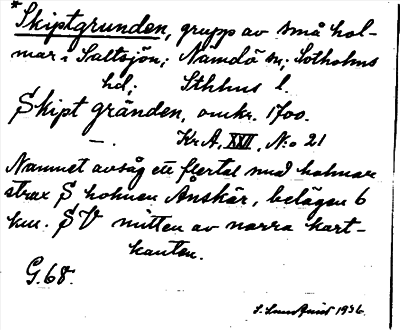 *Skiptgrunden, grupp av små hol-
mar i Saltsjön; Nämdö sn; Sotholms
hd; Sthlms l.
Skipt gränden, omkr. 1700.
— Kr A, XXII, N:o 21
Namnet avsåg ett flertal små holmar
strax S holmen Anskär, belägen 6
km. SV mitten av norra kart-
kanten.
G.68.
1936.